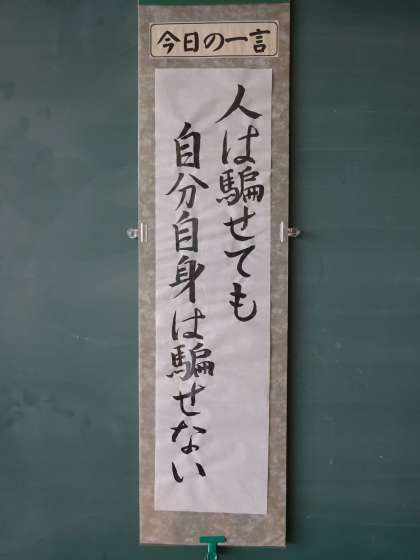 今日の一言
人は騙せても
自分自身は騙せない